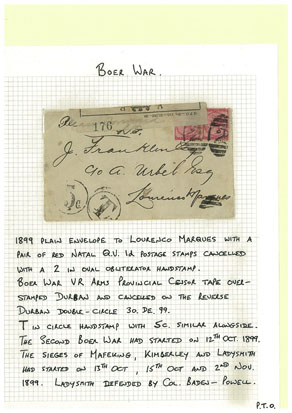 BOER WAR.
176
J. Franklin
c/o A. Urbel Esq
Lourenco Marques
1899 PLAIN ENVELOPE TO LOURENCO MARQUES WITH A
PAIR OF RED NATAL Q.V. 1d POSTAGE STAMPS CANCELLED
WITH A 2 IN OVAL OBLITERATOR HANDSTAMP.
BOER WAR V.R ARMS PROVINCIAL CENSOR TAPE OVER-
STAMPED DURBAN AND CANCELLED ON THE REVERSE
DURBAN DOUBLE-CIRCLE 30. DE. 99.
T IN CIRCLE HANDSTAMP WITH 5c. SIMILAR ALONGSIDE.
THE SECOND BOER WAR HAD STARTED ON 12TH OCT. 1899.
THE SIEGES OF MAFEKING, KIMBERLEY AND LADYSMITH
HAD STARTED ON 13TH OCT, 15TH OCT AND 2ND NOV.
1899. LADYSMITH DEFENDED BY COL. BADEN-POWELL.
P.T.O.